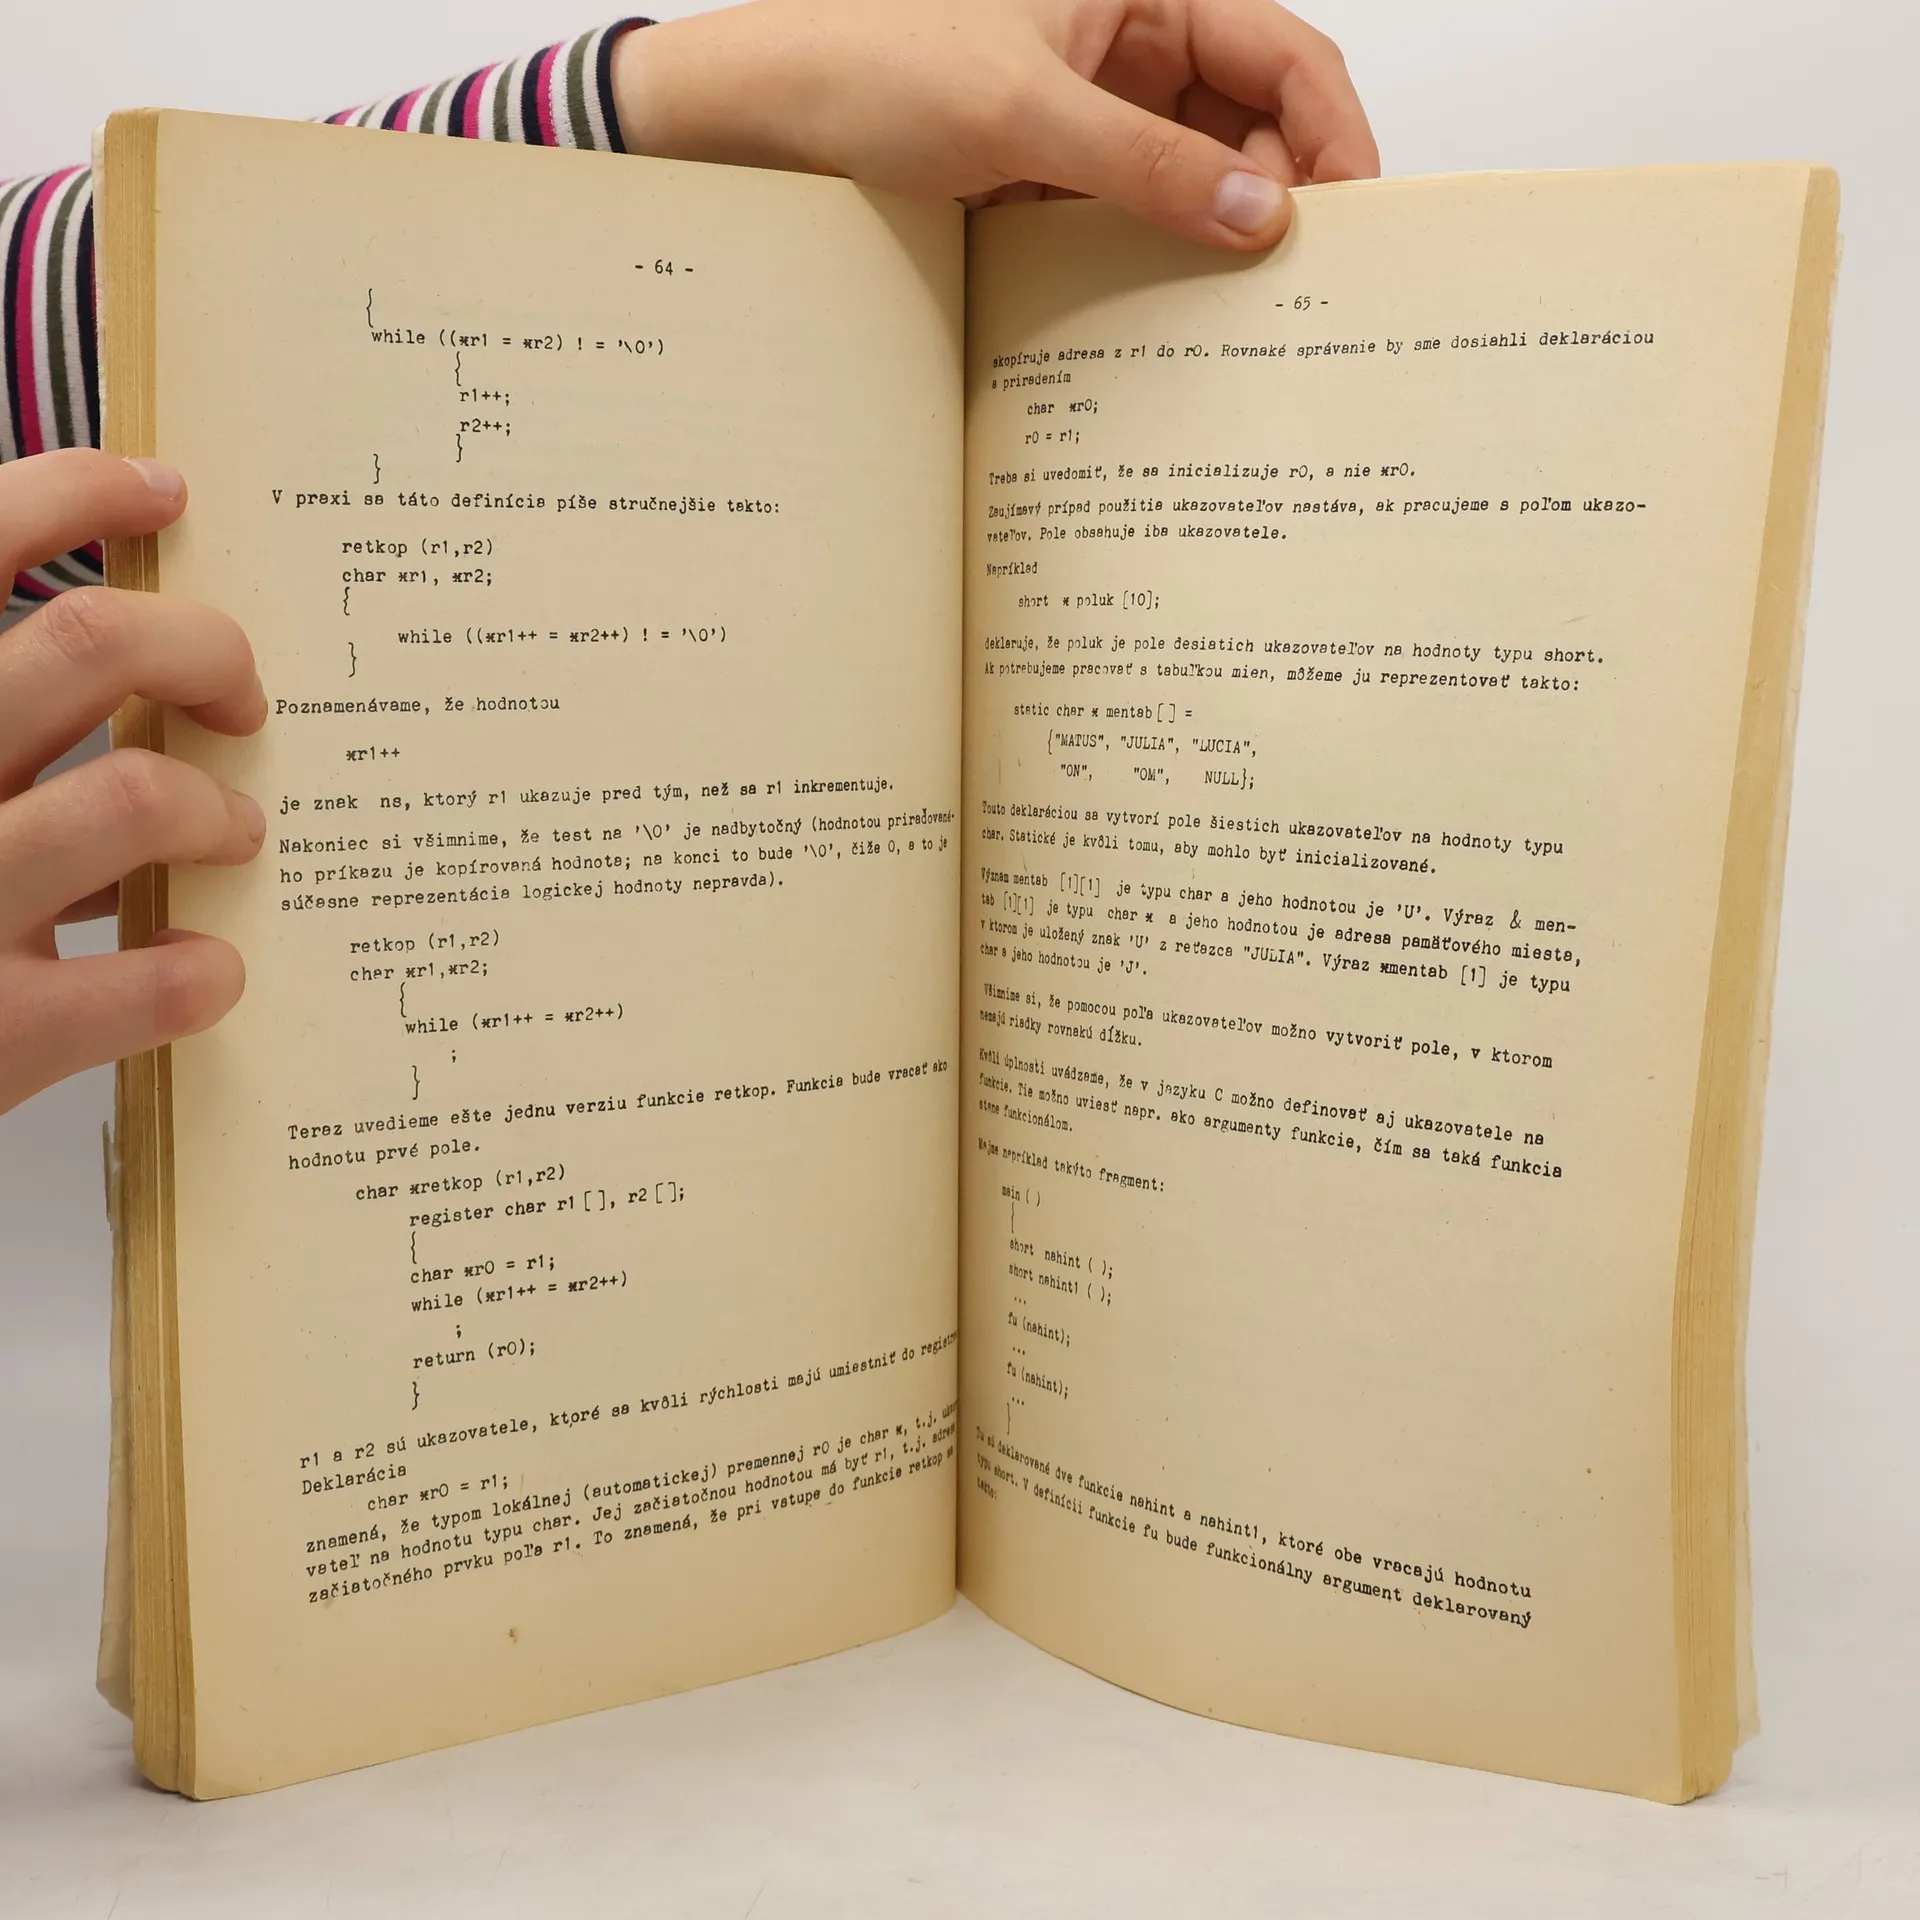 - 64 -
{
while ((*r1 = *r2) ! = '\0')
{
r1++;
r2++;
}
}
V praxi sa táto definícia píše stručnejšie takto:
retkop (r1,r2)
char *r1, *r2;
{
while ((*r1++ = *r2++) ! = '\0')
}
Poznamenávame, že hodnotou
*r1++
je znak ns, ktorý r1 ukazuje pred tým, než sa r1 inkrementuje.
Nakoniec si všimnime, že test na '\0' je nadbytočný (hodnotou priraďované-
ho príkazu je kopírovaná hodnota; na konci to bude '\0', čiže 0, a to je
súčasne reprezentácia logickej hodnoty nepravda).
retkop (r1,r2)
char *r1,*r2;
{
while (*r1++ = *r2++)
;
}
Teraz uvedieme ešte jednu verziu funkcie retkop. Funkcia bude vracať ako
hodnotu prvé pole.
char *retkop (r1,r2)
register char r1 [], r2 [];
{
char *r0 = r1;
while (*r1++ = *r2++)
;
return (r0);
}
r1 a r2 sú ukazovatele, ktoré sa kvôli rýchlosti majú umiestniť do
Deklarácia
char *r0 = r1;
znamená, že typom lokálnej (automatickej) premennej r0 je char *, t.j.
vateľ na hodnotu typu char. Jej začiatočnou hodnotou má byť r1, t.j.
začiatočného prvku poľa r1. To znamená, že pri vstupe do funkcie retkop
- 65 -
skopíruje adresa z r1 do r0. Rovnaké správanie by sme dosiahli deklaráciou
a priradením
char *r0;
r0 = r1;
Treba si uvedomiť, že sa inicializuje r0, a nie *r0.
Zaujímavý prípad použitia ukazovateľov nastáva, ak pracujeme s poľom ukazo-
vateľov. Pole obsahuje iba ukazovatele.
Napríklad
short * poluk [10];
deklaruje, že poluk je pole desiatich ukazovateľov na hodnoty typu short.
Ak potrebujeme pracovať s tabuľkou mien, môžeme ju reprezentovať takto:
static char * mentab [] =
{"MATUS", "JULIA", "LUCIA",
"ON", "OM", NULL};
Touto deklaráciou sa vytvorí pole šiestich ukazovateľov na hodnoty typu
char. Statické je kvôli tomu, aby mohlo byť inicializované.
Význam mentab [1][1] je typu char a jeho hodnotou je 'U'. Výraz & men-
tab [1][1] je typu char * a jeho hodnotou je adresa pamäťového miesta,
v ktorom je uložený znak 'U' z reťazca "JULIA". Výraz *mentab [1] je typu
char a jeho hodnotou je 'J'.
Všimnime si, že pomocou poľa ukazovateľov možno vytvoriť pole, v ktorom
nemajú riadky rovnakú dĺžku.
Kvôli úplnosti uvádzame, že v jazyku C možno definovať aj ukazovatele na
funkcie. Tie možno uviesť napr. ako argumenty funkcie, čím sa taká funkcia
stane funkcionálom.
Majme napríklad takýto fragment:
main ( )
{
short nahint ( );
short nahint1 ( );
...
fu (nahint);
...
fu (nahint);
...
}
Tu sú deklarované dve funkcie nahint a nahint1, ktoré obe vracajú hodnotu
typu short. V definícii funkcie fu bude funkcionálny argument deklarovaný
takto: